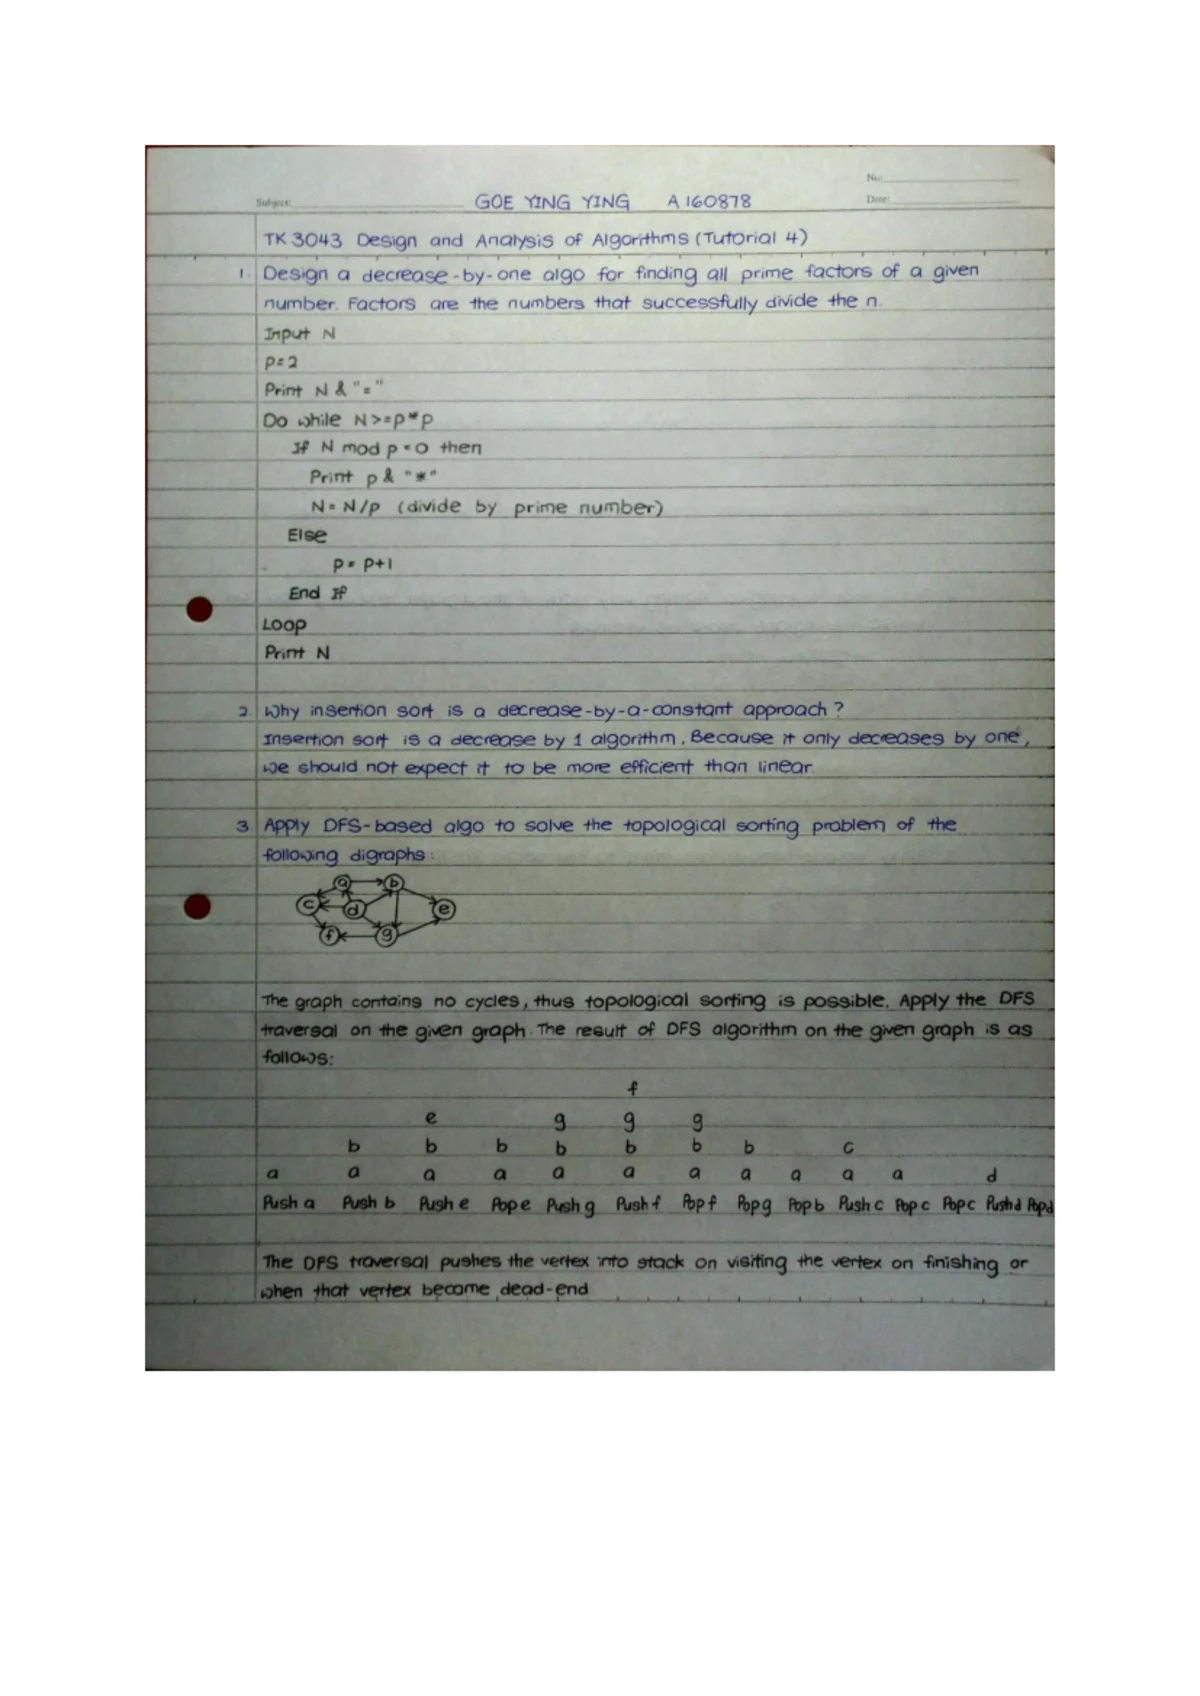 No:
Subject: GOE YING YING A160878 Date:
TK3043 Design and Analysis of Algorithms (Tutorial 4)
1. Design a decrease-by-one algo for finding all prime factors of a given
number. Factors are the numbers that successfully divide the n.
Input N
p=2
Print N & "="
Do while N>=p*p
If N mod p = 0 then
Print p & "*"
N = N/p (divide by prime number)
Else
p = p+1
End If
Loop
Print N
2. Why insertion sort is a decrease-by-a-constant approach?
Insertion sort is a decrease by 1 algorithm. Because it only decreases by one,
we should not expect it to be more efficient than linear.
3 Apply DFS-based algo to solve the topological sorting problem of the
following digraphs:
a b
c d e
f g
The graph contains no cycles, thus topological sorting is possible. Apply the DFS
traversal on the given graph. The result of DFS algorithm on the given graph is as
follows:
f
e g g g
b b b b b b b c
a a a a a a a a a a a d
Push a Push b Push e Pop e Push g Push f Pop f Pop g Pop b Push c Pop c Pop c Push d Pop d
The DFS traversal pushes the vertex into stack on visiting the vertex on finishing or
when that vertex become dead-end